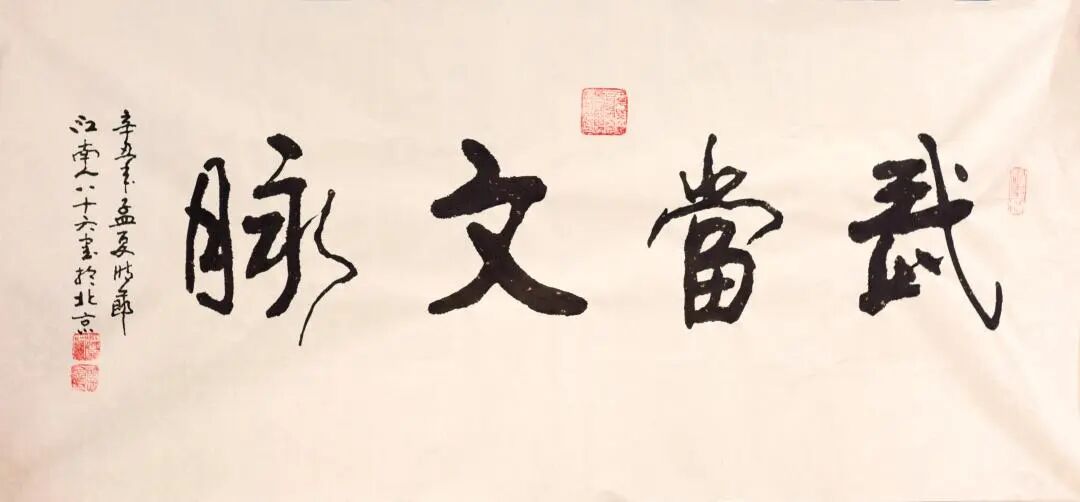 武當文脉
辛丑年孟夏時節
江南人八十六書於北京